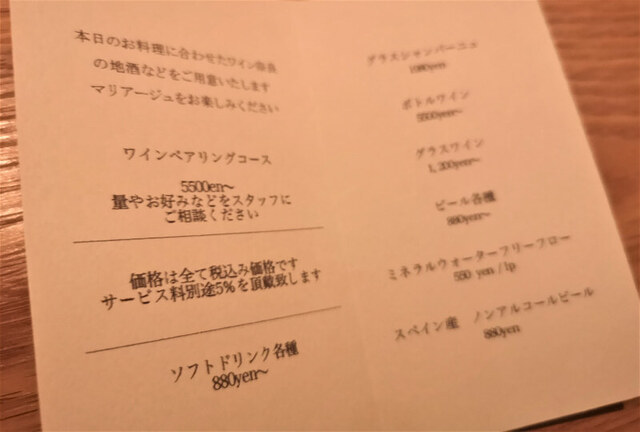 本日のお料理に合わせたワイン奈良
の地酒などをご用意いたします
マリアージュをお楽しみください
ワインペアリングコース
5500en～
量やお好みなどをスタッフに
ご相談ください
価格は全て税込み価格です
サービス料別途5%を頂戴致します
ソフトドリンク各種
880yen～
グラスシャンパーニュ
ボトルワイン
5500yen～
グラスワイン
1,200yen～
ビール各種
880yen～
ミネラルウォーターフリーフロー
550 yen /1p
スペイン産 ノンアルコールビール
880yen